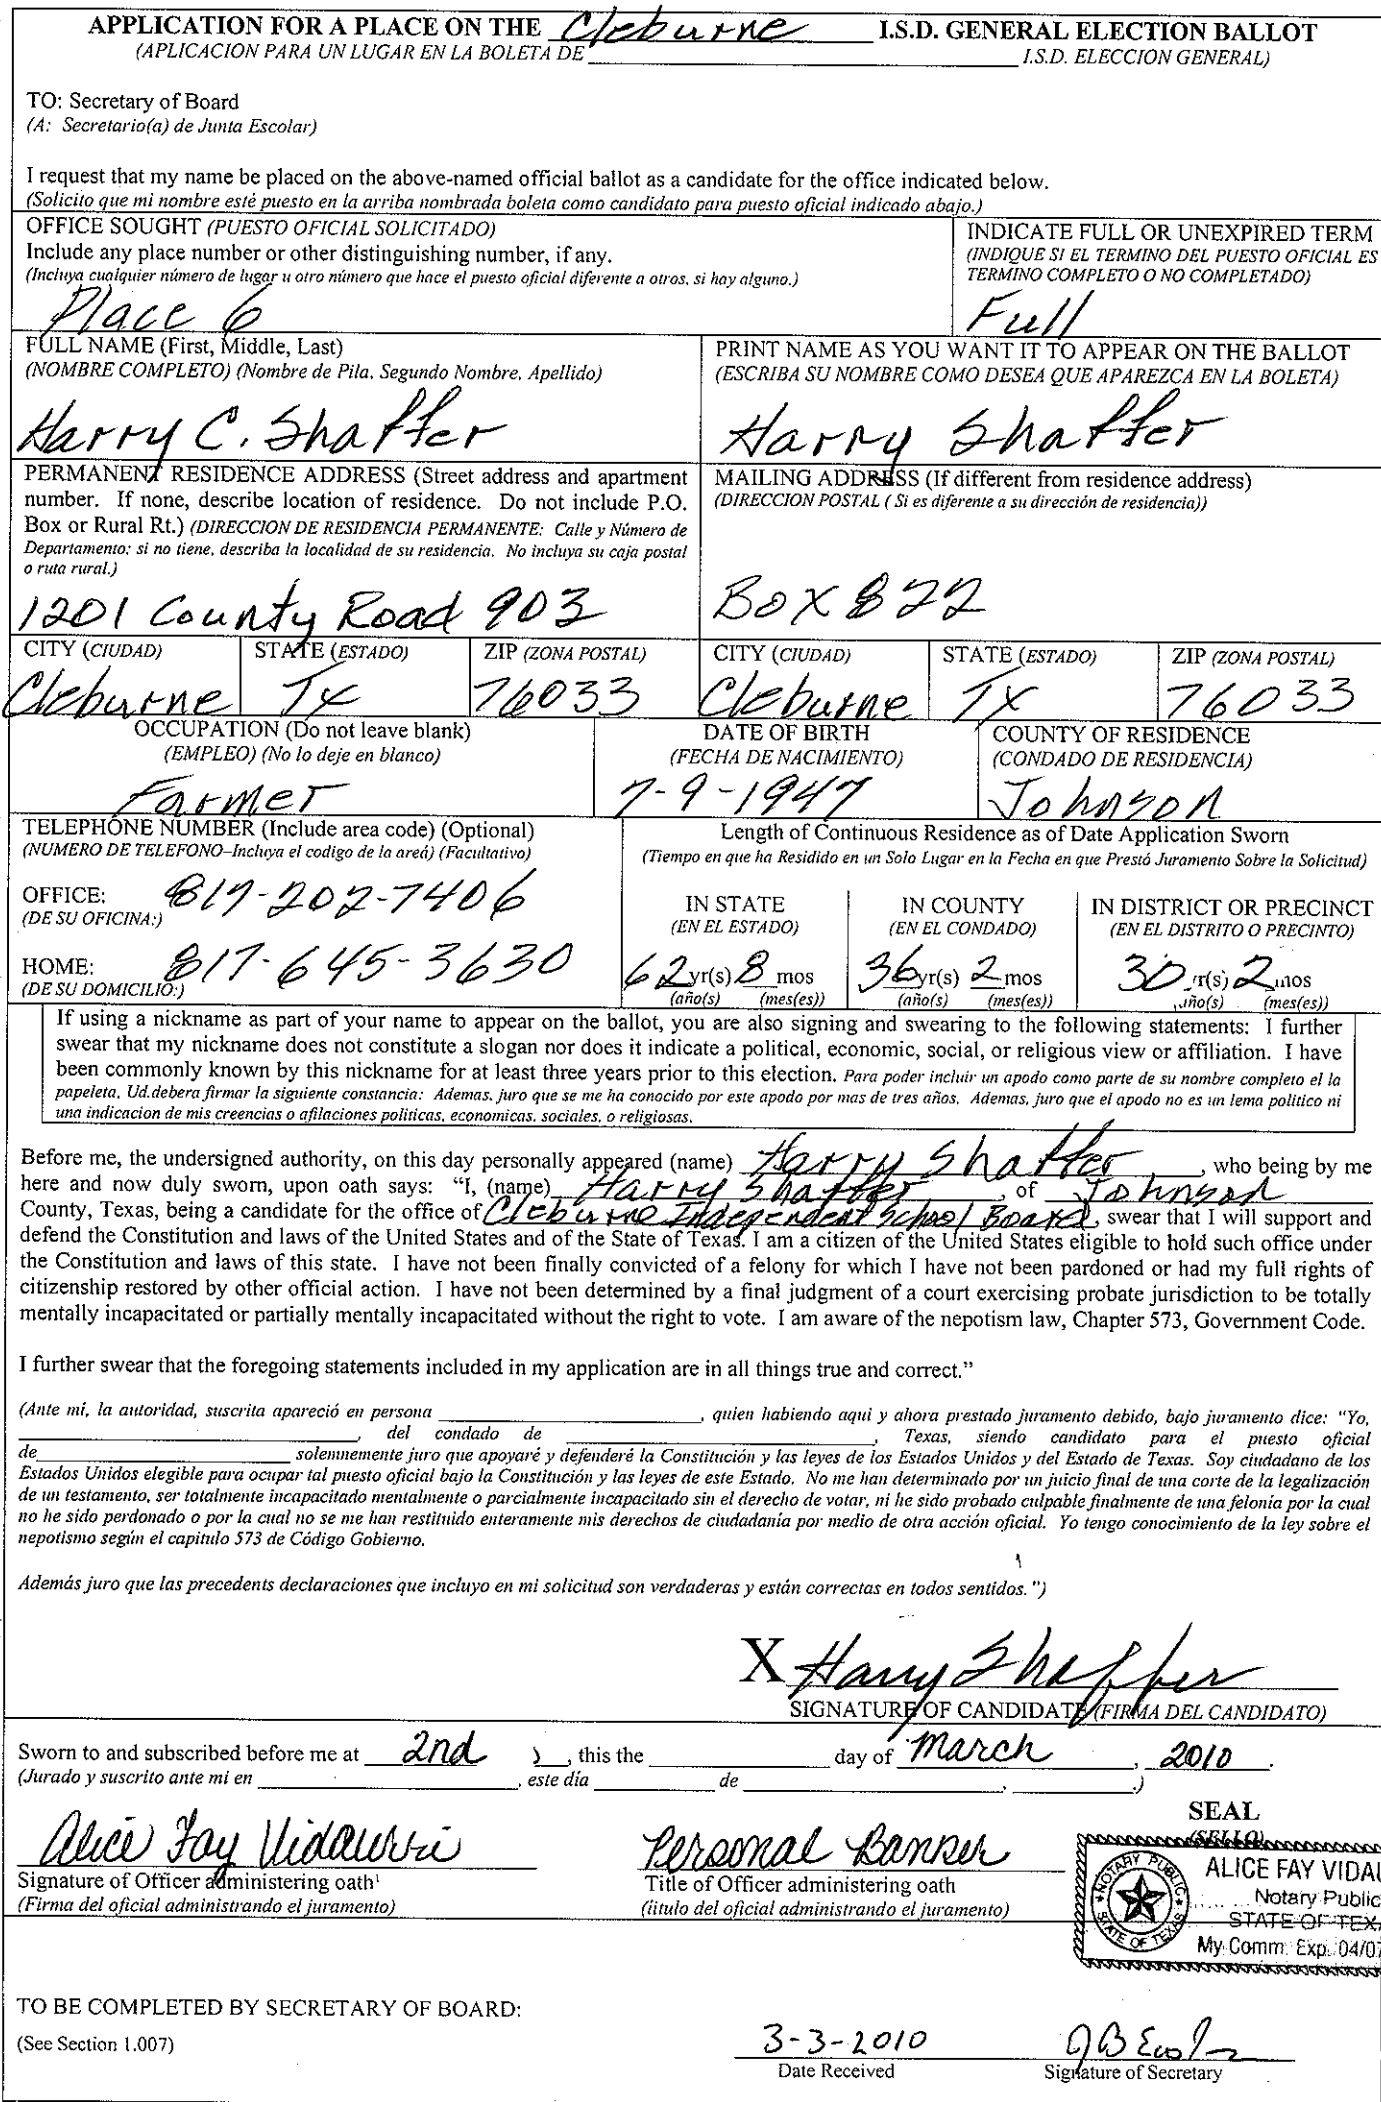 APPLICATION FOR A PLACE ON THE Cleburne I.S.D. GENERAL ELECTION BALLOT
(APLICACION PARA UN LUGAR EN LA BOLETA DE I.S.D. ELECCION GENERAL)
TO: Secretary of Board
(A: Secretario(a) de Junta Escolar)
I request that my name be placed on the above-named official ballot as a candidate for the office indicated below.
(Solicito que mi nombre esté puesto en la arriba nombrada boleta como candidato para puesto oficial indicado abajo.)
OFFICE SOUGHT (PUESTO OFICIAL SOLICITADO)
Include any place number or other distinguishing number, if any.
(Incluya cualquier número de lugar u otro número que hace el puesto oficial diferente a otros, si hay alguno.)
Place 6
INDICATE FULL OR UNEXPIRED TERM
(INDIQUE SI EL TERMINO DEL PUESTO OFICIAL ES
TERMINO COMPLETO O NO COMPLETADO)
Full
FULL NAME (First, Middle, Last)
(NOMBRE COMPLETO) (Nombre de Pila, Segundo Nombre, Apellido)
Harry C. Shaffer
PRINT NAME AS YOU WANT IT TO APPEAR ON THE BALLOT
(ESCRIBA SU NOMBRE COMO DESEA QUE APAREZCA EN LA BOLETA)
Harry Shaffer
PERMANENT RESIDENCE ADDRESS (Street address and apartment
number. If none, describe location of residence. Do not include P.O.
Box or Rural Rt.) (DIRECCION DE RESIDENCIA PERMANENTE: Calle y Número de
Departamento; si no tiene, describa la localidad de su residencia. No incluya su caja postal
o ruta rural.)
1201 County Road 903
MAILING ADDRESS (If different from residence address)
(DIRECCION POSTAL ( Si es diferente a su dirección de residencia))
Box 822
CITY (CIUDAD) STATE (ESTADO) ZIP (ZONA POSTAL) CITY (CIUDAD) STATE (ESTADO) ZIP (ZONA POSTAL)
Cleburne Tx 76033 Cleburne TX 76033
OCCUPATION (Do not leave blank)
(EMPLEO) (No lo deje en blanco)
Farmer
DATE OF BIRTH
(FECHA DE NACIMIENTO)
7-9-1947
COUNTY OF RESIDENCE
(CONDADO DE RESIDENCIA)
Johnson
TELEPHONE NUMBER (Include area code) (Optional)
(NUMERO DE TELEFONO–Incluya el codigo de la areá) (Facultativo)
OFFICE: 817-202-7406
(DE SU OFICINA:)
HOME: 817-645-3630
(DE SU DOMICILIO:)
Length of Continuous Residence as of Date Application Sworn
(Tiempo en que ha Residido en un Solo Lugar en la Fecha en que Prestó Juramento Sobre la Solicitud)
IN STATE IN COUNTY IN DISTRICT OR PRECINCT
(EN EL ESTADO) (EN EL CONDADO) (EN EL DISTRITO O PRECINTO)
62 yr(s) 8 mos 36 yr(s) 2 mos 30 yr(s) 2 mos
(año(s) (mes(es)) (año(s) (mes(es)) año(s) (mes(es))
If using a nickname as part of your name to appear on the ballot, you are also signing and swearing to the following statements: I further
swear that my nickname does not constitute a slogan nor does it indicate a political, economic, social, or religious view or affiliation. I have
been commonly known by this nickname for at least three years prior to this election. Para poder incluir un apodo como parte de su nombre completo el la
papeleta, Ud.debera firmar la siguiente constancia: Ademas, juro que se me ha conocido por este apodo por mas de tres años. Ademas, juro que el apodo no es un lema politico ni
una indicacion de mis creencias o afilaciones politicas, economicas, sociales, o religiosas.
Before me, the undersigned authority, on this day personally appeared (name) Harry Shaffer, who being by me
here and now duly sworn, upon oath says: “I, (name) Harry Shaffer, of Johnson
County, Texas, being a candidate for the office of Cleburne Independent School Board, swear that I will support and
defend the Constitution and laws of the United States and of the State of Texas. I am a citizen of the United States eligible to hold such office under
the Constitution and laws of this state. I have not been finally convicted of a felony for which I have not been pardoned or had my full rights of
citizenship restored by other official action. I have not been determined by a final judgment of a court exercising probate jurisdiction to be totally
mentally incapacitated or partially mentally incapacitated without the right to vote. I am aware of the nepotism law, Chapter 573, Government Code.
I further swear that the foregoing statements included in my application are in all things true and correct.”
(Ante mí, la autoridad, suscrita apareció en persona , quien habiendo aqui y ahora prestado juramento debido, bajo juramento dice: "Yo,
, del condado de , Texas, siendo candidato para el puesto oficial
de solemnemente juro que apoyaré y defenderé la Constitución y las leyes de los Estados Unidos y del Estado de Texas. Soy ciudadano de los
Estados Unidos elegible para ocupar tal puesto oficial bajo la Constitución y las leyes de este Estado. No me han determinado por un juicio final de una corte de la legalización
de un testamento, ser totalmente incapacitado mentalmente o parcialmente incapacitado sin el derecho de votar, ni he sido probado culpable finalmente de una felonía por la cual
no he sido perdonado o por la cual no se me han restituido enteramente mis derechos de ciudadanía por medio de otra acción oficial. Yo tengo conocimiento de la ley sobre el
nepotismo según el capitulo 573 de Código Gobierno.
Además juro que las precedents declaraciones que incluyo en mi solicitud son verdaderas y están correctas en todos sentidos.")
X Harry Shaffer
SIGNATURE OF CANDIDATE (FIRMA DEL CANDIDATO)
Sworn to and subscribed before me at 2nd , this the day of March, 2010.
(Jurado y suscrito ante mi en , este día de , .)
Alice Fay Vidaurri
Signature of Officer administering oath¹
(Firma del oficial administrando el juramento)
Personal Banker
Title of Officer administering oath
(titulo del oficial administrando el juramento)
SEAL
(SELLO)
NOTARY PUBLIC
STATE OF TEXAS
ALICE FAY VIDAU
Notary Public
STATE OF TEX
My Comm. Exp. 04/07
TO BE COMPLETED BY SECRETARY OF BOARD:
(See Section 1.007)
3-3-2010
Date Received
Signature of Secretary